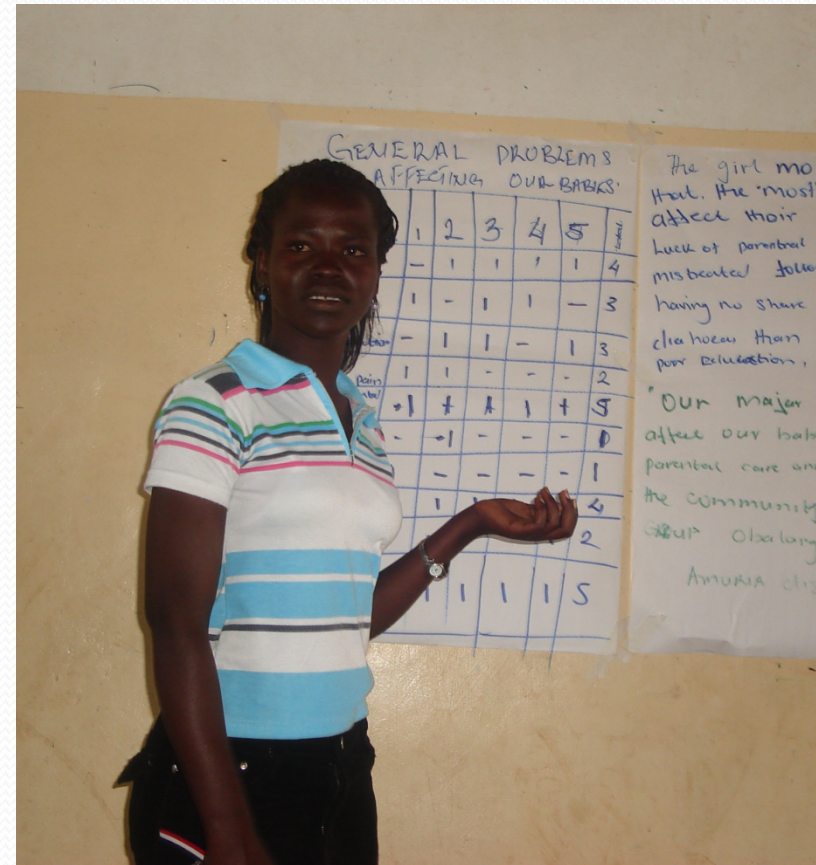 GENERAL PROBLEMS
AFFECTING OUR BABIES.
1 2 3 4 5 Total
- 1 1 1 1 4
1 - 1 1 - 3
- 1 1 - 1 3
pain 1 1 - - - 2
1 1 1 1 1 5
- 1 - - -
- - - - 1
1
2
1 1 1 1 5
The girl mo
that. the "most
affect thoir
Luck of parentral
mistreated follo
having no share
than
poor
"Our major
affect our bab
parental care an
the community
Obalang
AMURIA dis